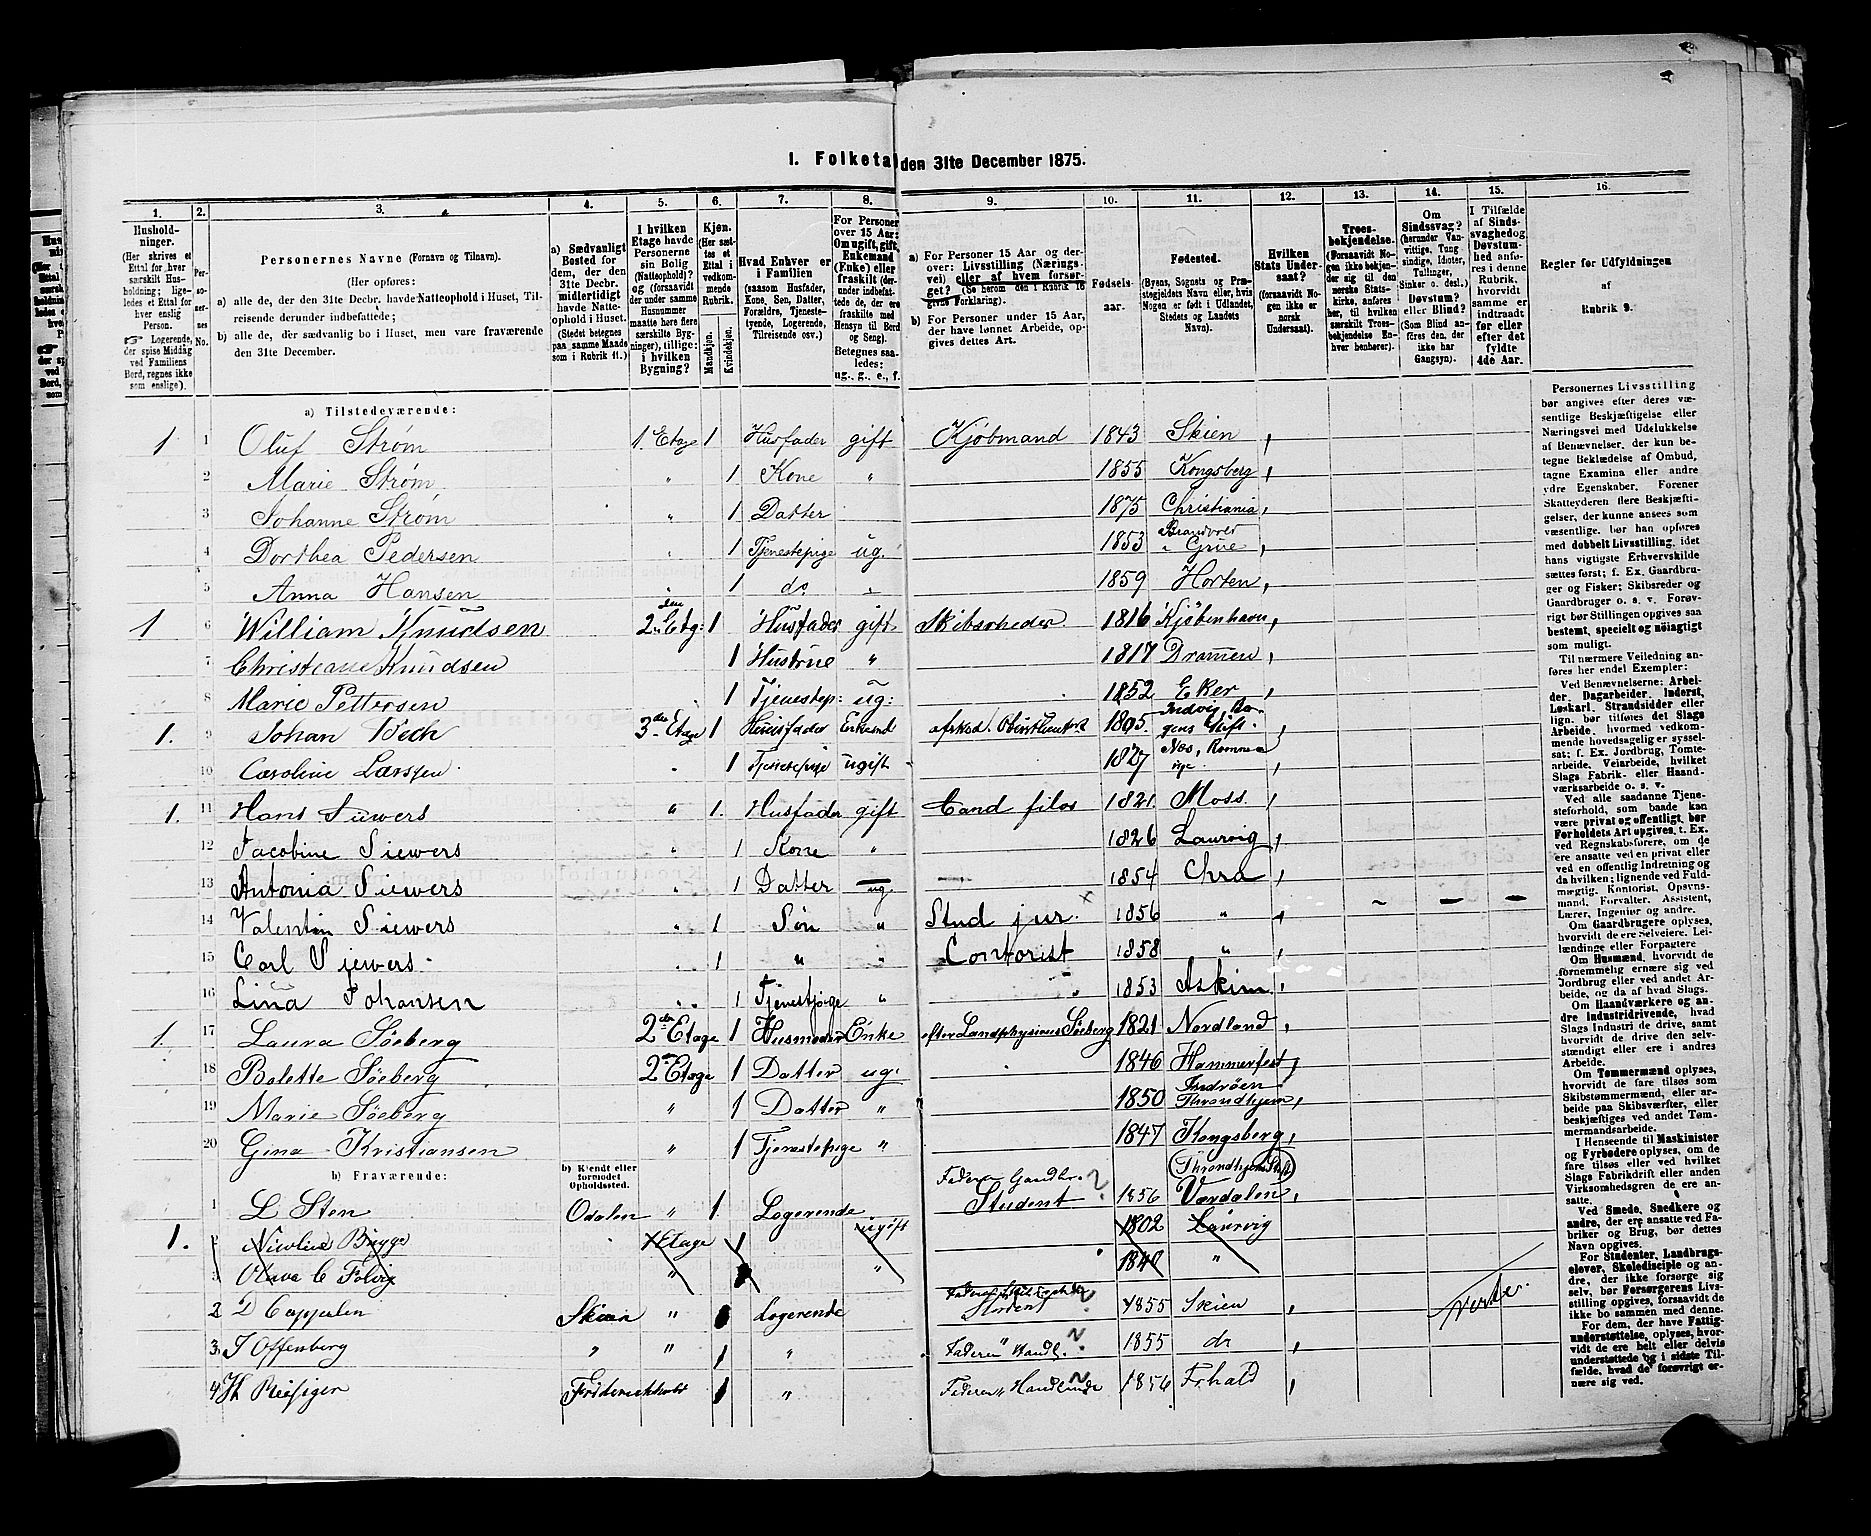 I. Folketal den 31te December 1875.
1. 2. 3. 4. 5. 6. 7. 8. 9. 10. 11. 12. 13. 14. 15. 16.
Hushold-
ninger.
(Her skrives et
Ettal for hver
særskilt Hus-
holdning; lige-
ledes et Ettal for
hver enslig
Person.
☞ Logerende,
der spise Middag
ved Familiens
Bord, regnes ikke
som enslige).
Per-
so-
ner-
nes
No.
Personernes Navne (Fornavn og Tilnavn).
(Her opføres:
a) alle de, der den 31te Decbr. havde Natteophold i Huset, Til-
reisende derunder indbefattede;
b) alle de, der sædvanlig bo i Huset, men vare fraværende
den 31te December.
a) Sædvanligt
Bosted for
dem, der den
31te Decbr.
midlertidigt
havde Natte-
ophold i Huset.
(Stedet betegnes
paa samme Maade
som i Rubrik 11.)
I hvilken
Etage havde
Personerne
sin Bolig
(Natteophold)?
og (forsaavidt
der under samme
Husnummer
maatte høre flere
særskilte Byg-
ninger), tillige:
i hvilken
Bygning?
Kjøn.
(Her sæt-
tes et
Ettal i
vedkom-
mende
Rubrik.
Mandkjøn.
Kvindekjøn.
Hvad Enhver er
i Familien
(saasom Husfader,
Kone, Søn, Datter,
Forældre, Tjeneste-
tyende, Logerende,
Tilreisende osv.)
For Personer
over 15 Aar:
Om ugift, gift,
Enkemand
(Enke) eller
fraskilt (der-
under indbefat-
tede de, der ere
fraskilte med
Hensyn til Bord
og Seng).
Betegnes saa-
ledes:
ug., g., e., f.
a) For Personer 15 Aar og der-
over: Livsstilling (Nærings-
vei) eller af hvem forsør-
get? (Se herom den i Rubrik 16
givne Forklaring).
b) For Personer under 15 Aar,
der have lønnet Arbeide, op-
gives dettes Art.
Fødsels-
aar.
Fødested.
(Byens, Sognets og Præ-
stegjeldets Navn eller, hvis
Nogen er født i Udlandet,
Stedets og Landets
Navn).
Hvilken
Stats Under-
saat?
(forsaavidt No-
gen ikke er
norsk
Undersaat).
Troes-
bekjendelse.
(Forsaavidt No-
gen ikke bekjen-
der sig til den
norske Stats-
kirke, anføres
her, til hvilken
særskilt Troes-
bekjendelse En-
hver henhører).
Om
Sindssvag?
(herunder Van-
vittige, Tung-
sindige, Idioter,
Tullinger,
Sinker o. desl.)
Døvstum?
eller Blind?
(Som Blind an-
føres den, der
ikke har
Gangsyn).
I Tilfælde
af Sinds-
svaghed og
Døvstum-
hed anfø-
res i denne
Rubrik,
hvorvidt
samme er
indtraadt
før eller
efter det
fyldte
4de Aar.
Regler for Udfyldningen
af
Rubrik 9.
a) Tilstedeværende:
1 1 Oluf Strøm 1. Etage 1 Husfader gift Kjøbmand 1843 Skien
2 Marie Strøm " 1 Kone " 1855 Kongsberg
3 Johanne Strøm " 1 Datter 1875 Christiania
4 Dorthea Pedersen " 1 Tjenestepige ug. 1853 Brandvold i Grue
5 Anna Hansen " 1 do " 1859 Horten
1 6 William Knudsen 2den Etg: 1 Husfader gift Skibsrheder 1816 Kjøbenhavn
7 Christiane Knudsen 1 Hustrue " 1817 Dramen
8 Marie Pettersen 1 Tjenestep: ug: 1852 Eker
1. 9 Johan Bech 3die Etage 1 Husfader Enkemd afsked. 1805
10 Caroline Larssen " 1 Tjenestepige ugift 1827 Næs, Romme-
rige
1. 11 Hans Siewers " 1. Husfader gift Cand filos 1821 Moss
12 Jacobine Siewers " 1 Kone " 1826 Laurvig
13 Antonia Siewers " 1 Datter ug. 1854 Chra
14 Valentin Siewers " 1 Søn " Stud jur. × 1856 "
15 Carl Siewers " 1 " " Contorist 1858 "
16 Lina Johansen " 1 Tjenestpige " 1853 Askim
1. 17 Laura Søeberg 2den Etage 1 Husmoder Enke efter Landphysicus Søeberg 1821 Nordland
18 Bolette Søeberg 2den Etage 1 Datter ug. 1846 Hammerfest
19 Marie Søeberg " 1 Datter " 1850 Indrøen
Throndhjem
20 Gina Kristiansen " 1 Tjenestepige " 1847 Kongsberg
b) Fraværende:
b) Kjendt eller
formodet
Opholdssted.
1 L Sten Odalen " 1. Logerende Faderen Gaardbr. Student ? 1856 Throndhjems Stift Værdalen
1. 2 Brygge 1 Etage 1 ugift 1802 Laurvig
3 " " 1840 "
2 D Cappelen Skien " Logerende Student 1855 Skien
3 J Offenberg " " 1 " Faderen " Handl. ? 1855 do
4 Th 1 " Faderen " Handlende 1856 Frhald
Personernes Livsstilling
bør angives efter deres væ-
sentlige Beskjæftigelse eller
Næringsvei med Udelukkelse
af Benævnelser, der kun be-
tegne Beklædelse af Ombud,
tagne Examina eller andre
ydre Egenskaber. Forener
Skatteyderen flere Beskjæfti-
gelser, der kunne ansees som
væsentlige, bør han opføres
med dobbelt Livsstilling, idet
hans vigtigste Erhvervskilde
sættes først; f. Ex. Gaardbru-
ger og Fisker; Skibsreder og
Gaardbruger o. s. v. Forøv-
rigt bør Stillingen opgives saa
bestemt, specielt og nøiagtigt
som muligt.
Til nærmere Veiledning an-
føres her endel Exempler:
Ved Benævnelserne: Arbei-
der, Dagarbeider, Inderst,
Løskarl, Strandsidder eller
lign. bør tilføies det Slags
Arbeide, hvormed vedkom-
mende hovedsagelig er syssel-
sat; f. Ex. Jordbrug, Tomte-
arbeide, Veiarbeide, hvilket
Slags Fabrik- eller Haand-
værksarbeide o. s. v.
Ved alle saadanne Tjene-
steforhold, som baade kan
være privat og offentligt, bør
Forholdets Art opgives, f. Ex.
ved Regnskabsførere, om de
ere ansatte ved en privat eller
ved en offentlig Indretning og
da hvilken; lignende ved Fuld-
mægtig, Kontorist, Opsyns-
mand, Forvalter, Assistent,
Lærer, Ingeniør og andre.
Om Gaardbrugere oplyses,
hvorvidt de ere Selveiere, Lei-
lændinge eller Forpagtere
Om Husmænd, hvorvidt de
fornemmelig ernære sig ved
Jordbrug eller ved andet Ar-
beide, og da af hvad Slags.
Om Haandværkere og an-
dre Industridrivende, hvad
Slags Industri de drive, samt
hvorvidt de drive den selv-
stændigt eller ere i andres
Arbeide.
Om Tømmermænd oplyses,
hvorvidt de fare tilsøs som
Skibstømmermænd, eller ar-
beide paa Skibsværfter, eller
beskjæftiges ved andet Tøm-
mermandsarbeide.
I Henseende til Maskinister
og Fyrbødere oplyses, om de
fare tilsøs eller ved hvilket
Slags Fabrikdrift eller anden
Virksomhedsgren de ere an-
satte.
Ved Smede, Snedkere og
andre, der ere ansatte ved Fa-
briker og Brug, bør dettes
Navn opgives.
For Studenter, Landbrugs-
elever, Skoledisciple og an-
dre, der ikke forsørge sig
selv, bør Forsørgerens Livs-
stilling opgives, forsaavidt de
ikke bo sammen med denne.
For dem, der have Fattig-
understøttelse, oplyses, hvor-
vidt de ere helt eller delvis
understøttede og i sidste Til-
fælde, hvad de forøvrigt er-
nære sig ved.